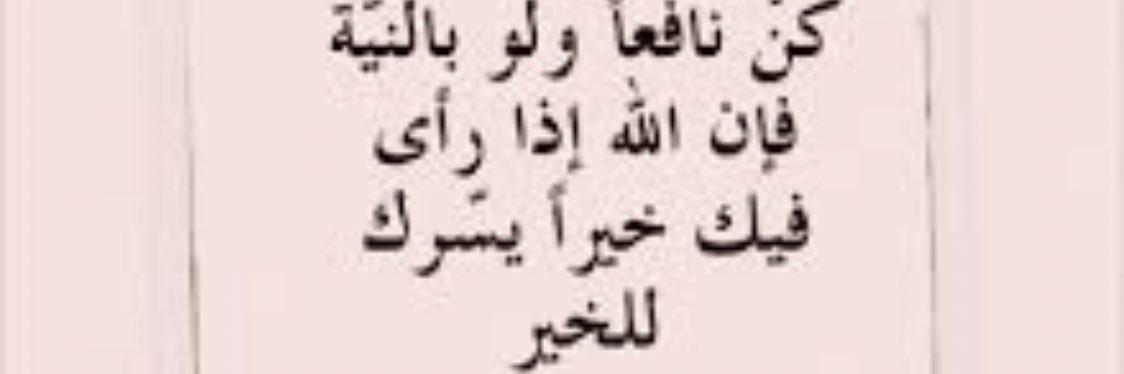 كنْ نافعاً ولو بالنيّة
فإن الله إذا رأى
فيك خيراً يسّرك
للخير